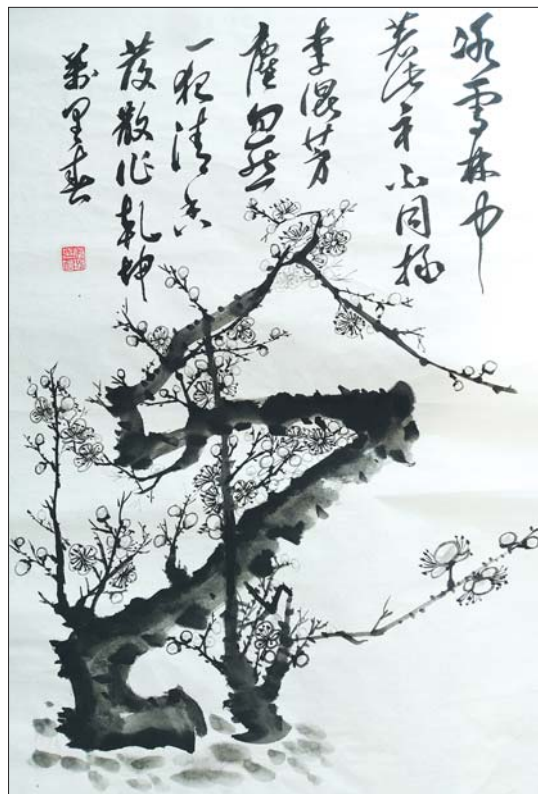 冰雪林中
著此身不同桃
李混芳
塵忽然
一夜清香
發散作乾坤
萬里春